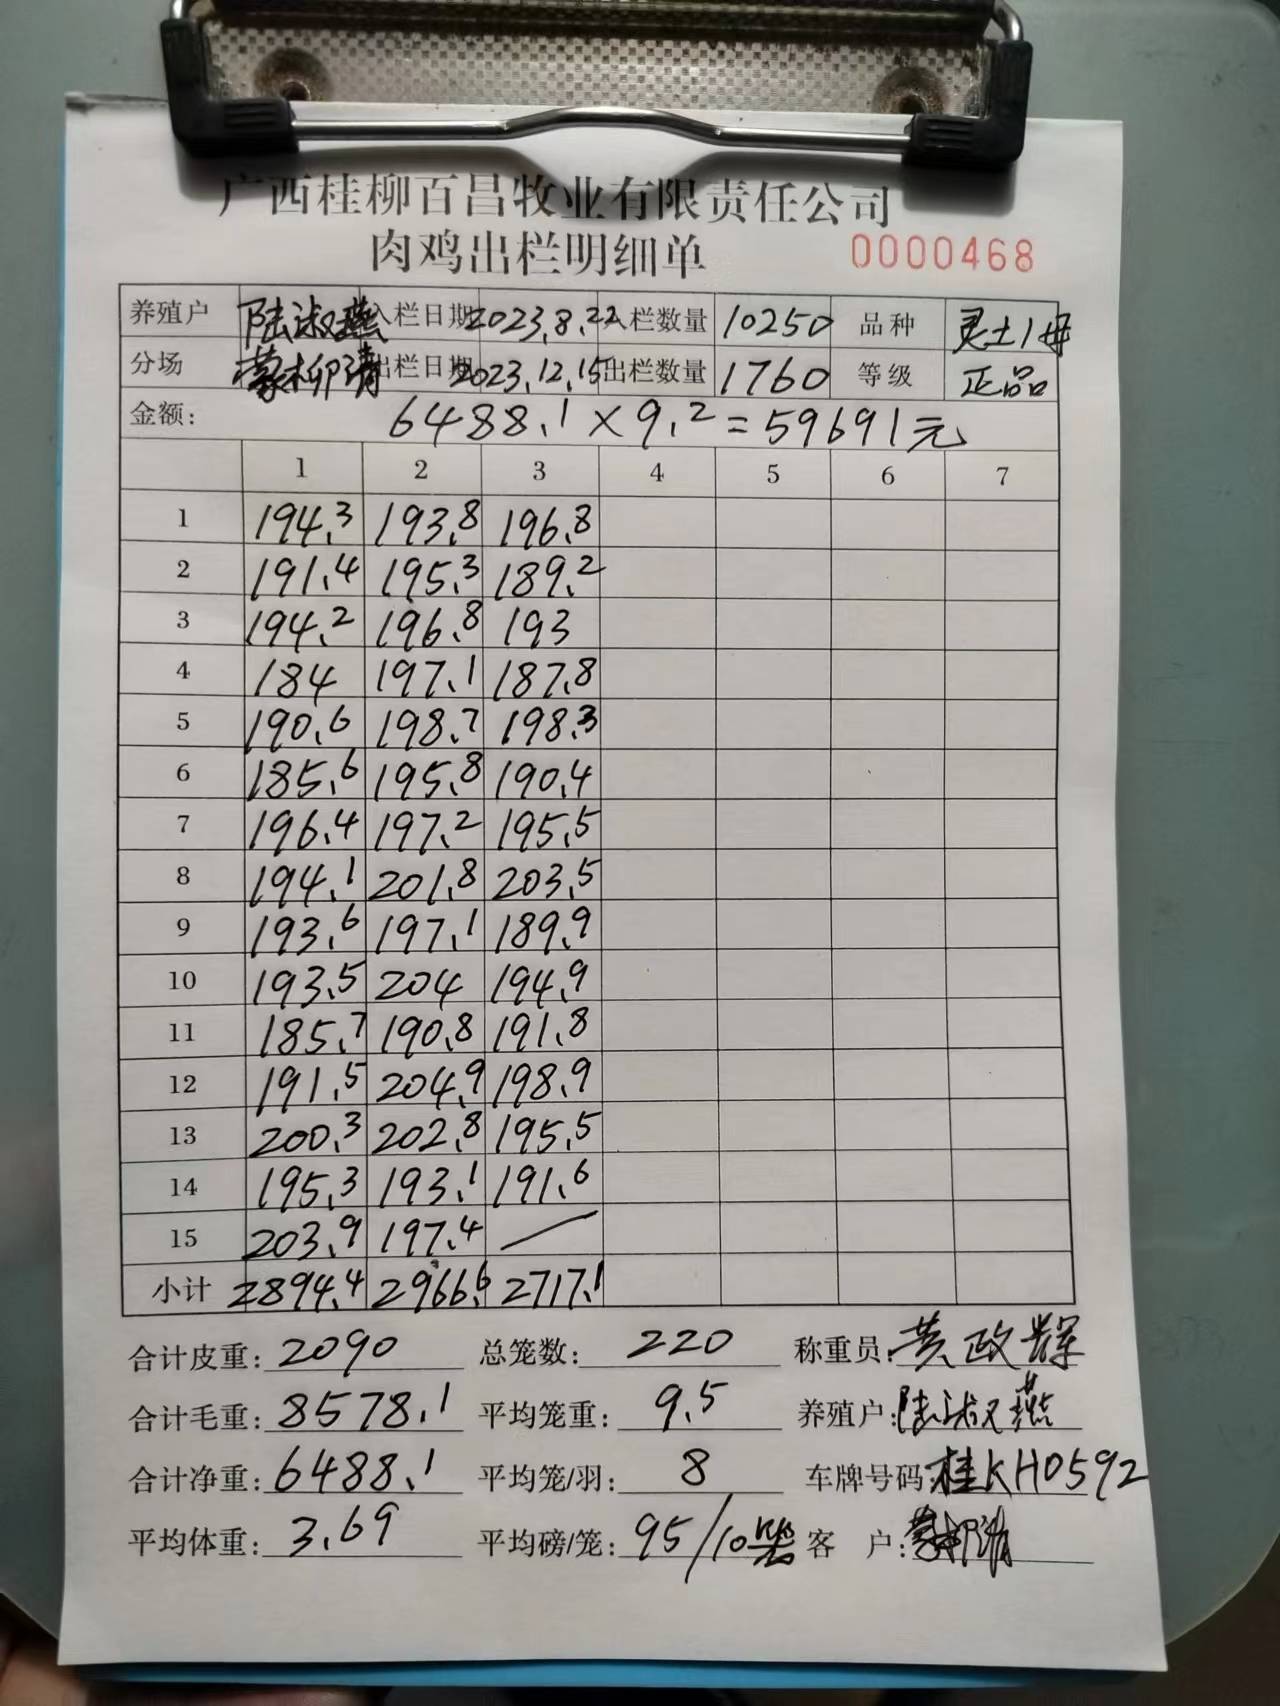 广西桂柳百昌牧业有限责任公司
肉鸡出栏明细单 0000468
养殖户 陆淑燕 入栏日期 2023.8.22 入栏数量 10250 品种 灵土1母
分场 蒙柳清 出栏日期 2023.12.15 出栏数量 1760 等级 正品
金额: 6488.1×9.2=59691元
1 2 3 4 5 6 7
1 194.3 193.8 196.8
2 191.4 195.3 189.2
3 194.2 196.8 193
4 184 197.1 187.8
5 190.6 198.7 198.3
6 185.6 195.8 190.4
7 196.4 197.2 195.5
8 194.1 201.8 203.5
9 193.6 197.1 189.9
10 193.5 204 194.9
11 185.7 190.8 191.8
12 191.5 204.9 198.9
13 200.3 202.8 195.5
14 195.3 193.1 191.6
15 203.9 197.4
小计 2894.4 2966.6 2717.1
合计皮重: 2090 总笼数: 220 称重员: 黄政辉
合计毛重: 8578.1 平均笼重: 9.5 养殖户: 陆淑燕
合计净重: 6488.1 平均笼/羽: 8 车牌号码: 桂KH0592
平均体重: 3.69 平均磅/笼: 95/10 客 户: 蒙柳清